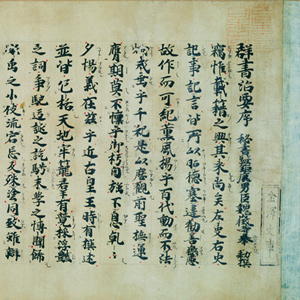 群書治要序 秘書監鉅鹿男臣魏徵等奉 勅撰
竊惟載籍之興其来尚矣左史右史
記事記言皆所以昭德塞違勸善懲惡
故作而可紀薫風揚乎百代動而不法
炯戒垂乎千祀是以歷觀前聖撫運
膺期莫不懍乎御朽自強不息乹〻
夕惕義在茲乎近古皇王時有撰述
並皆包括天地牢籠羣有競採浮艶
之詞爭馳迂誕之說騁末學之博聞飾
雕虫之小伎流宕忘反殊塗同致雖辯
金澤文庫